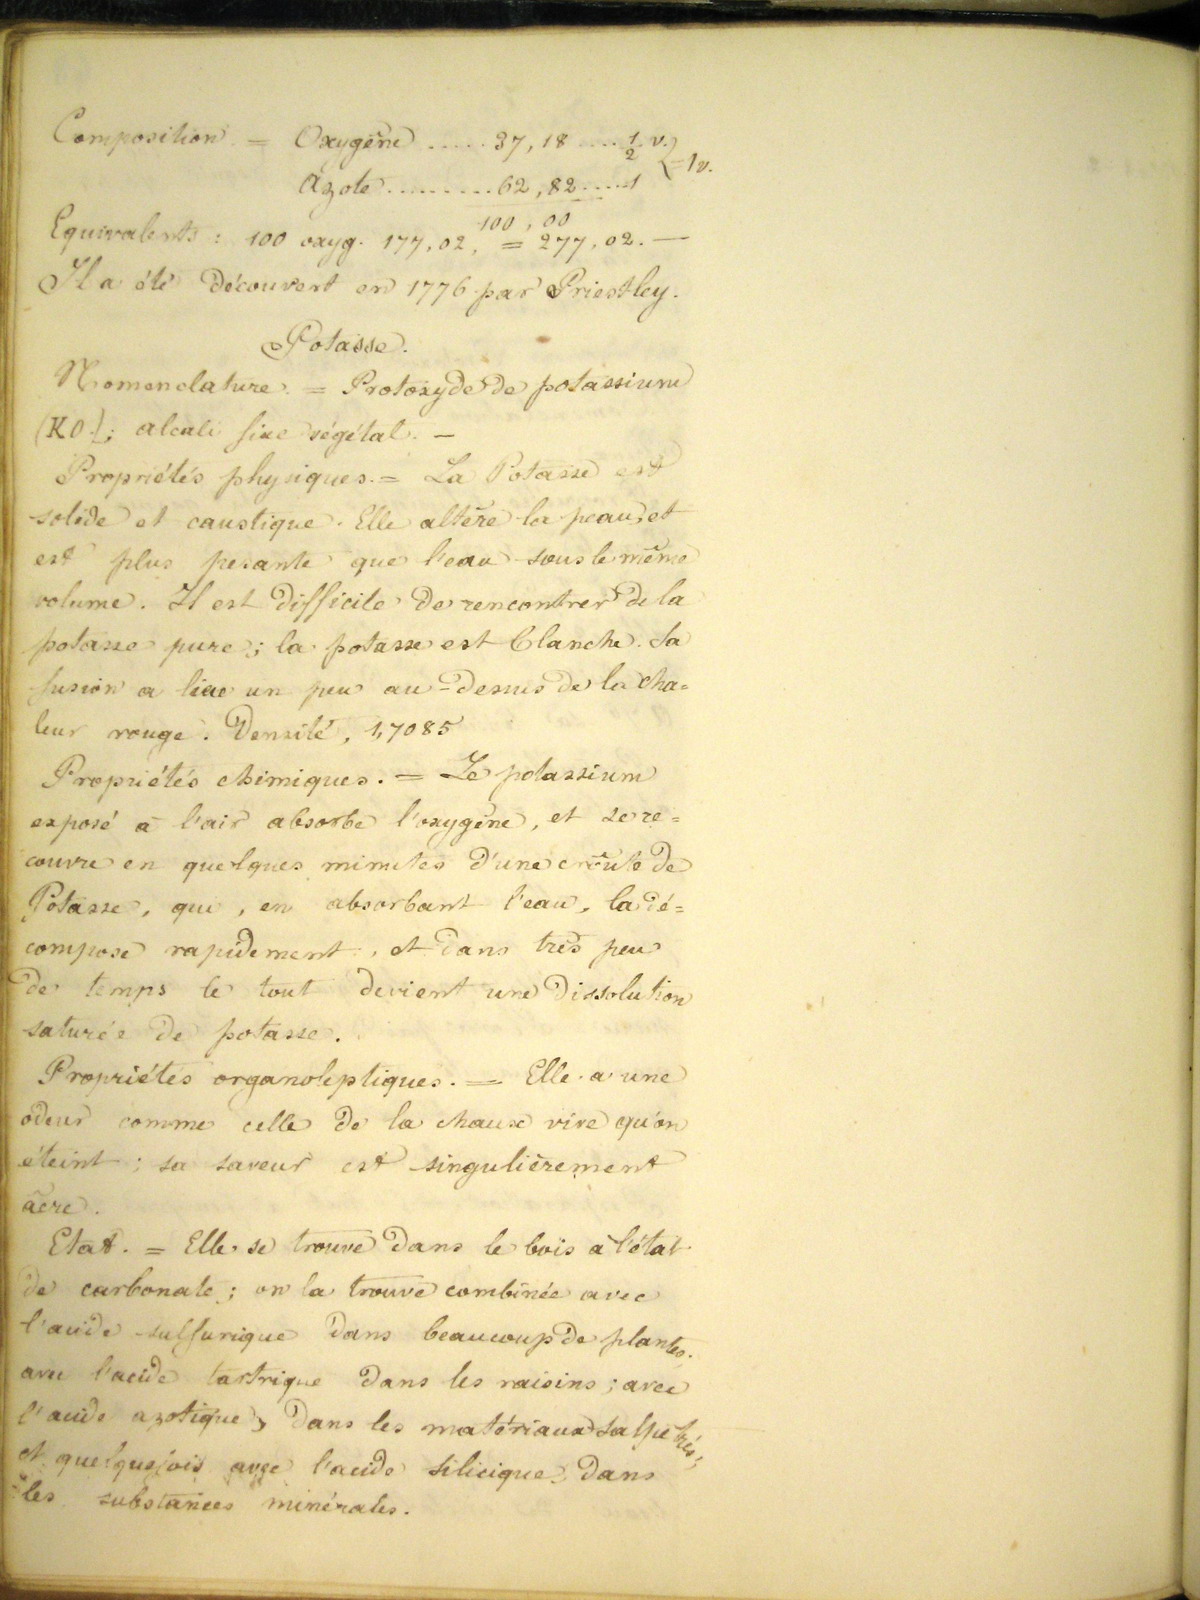 Composition = Oxygène ..... 37,18 .... 1/2 v. } = 1 v.
Azote .......... 62,82 ..... 1
100,00
Equivalents : 100 oxyg. 177,02, = 277,02. —
Il a été découvert en 1776 par Priestley.
Potasse.
Nomenclature. = Protoxyde de potassium
(KO.]; alcali fixe végétal. —
Propriétés physiques. = La Potasse est
solide et caustique. Elle altère la peau, et
est plus pesante que l'eau sous le même
volume. Il est difficile de rencontrer de la
potasse pure ; la potasse est blanche. Sa
fusion a lieu un peu au-dessus de la cha=
leur rouge. Densité, 1,7085
Propriétés chimiques. = Le potassium
exposé à l'air absorbe l'oxygène, et se re=
couvre en quelques minutes d'une croûte de
Potasse, qui, en absorbant l'eau, la dé=
compose rapidement, et dans très peu
de temps le tout devient une dissolution
saturée de potasse.
Propriétés organoleptiques. = Elle a une
odeur comme celle de la chaux vive qu'on
éteint ; sa saveur est singulièrement
âcre.
Etat. = Elle se trouve dans le bois à l'état
de carbonate ; on la trouve combinée avec
l'acide sulfurique dans beaucoup de plantes,
avec l'acide tartrique dans les raisins ; avec
l'acide azotique, dans les matériaux salpêtrés,
et quelquefois avec l'acide silicique, dans
les substances minérales.